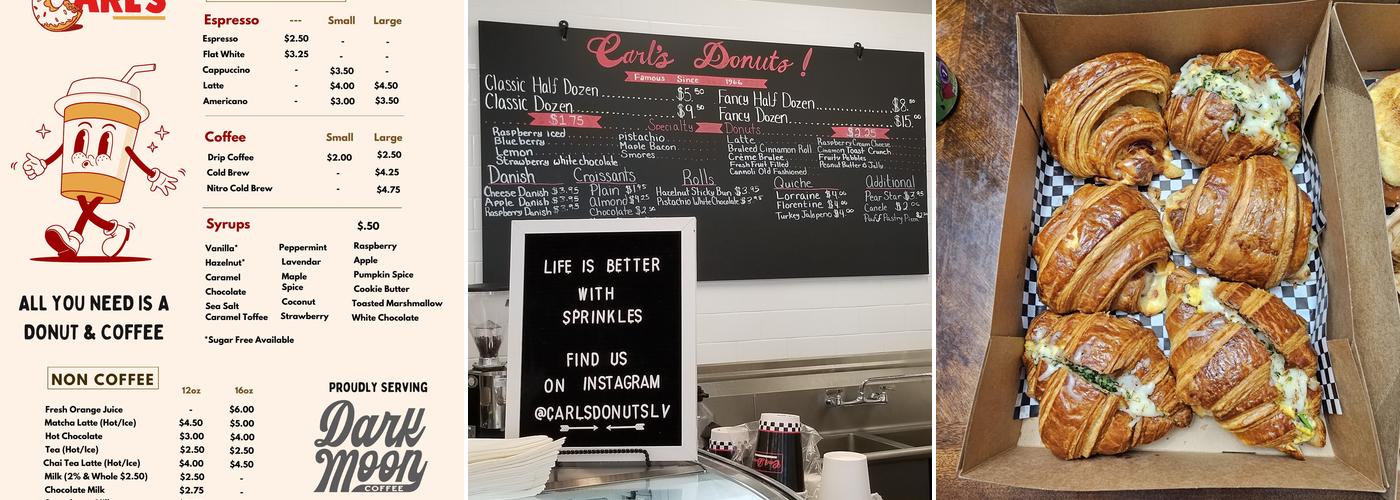 ARL'S
Espresso --- Small Large
Espresso $2.50 - -
Flat White $3.25 - -
Cappuccino - $3.50 -
Latte - $4.00 $4.50
Americano - $3.00 $3.50
Coffee Small Large
Drip Coffee $2.00 $2.50
Cold Brew - $4.25
Nitro Cold Brew - $4.75
Syrups $.50
Vanilla* Peppermint Raspberry
Hazelnut* Lavendar Apple
Caramel Maple Spice Pumpkin Spice
Chocolate Coconut Cookie Butter
Sea Salt Caramel Toffee Strawberry Toasted Marshmallow
White Chocolate
*Sugar Free Available
ALL YOU NEED IS A
DONUT & COFFEE
NON COFFEE 12oz 16oz
Fresh Orange Juice - $6.00
Matcha Latte (Hot/Ice) $4.50 $5.00
Hot Chocolate $3.00 $4.00
Tea (Hot/Ice) $2.50 $2.50
Chai Tea Latte (Hot/Ice) $4.00 $4.50
Milk (2% & Whole $2.50) $2.50 -
Chocolate Milk $2.75 -
PROUDLY SERVING
Dark
Moon
COFFEE
Carl's Donuts!
Famous Since 1966
Classic Half Dozen $5.50
Classic Dozen $9.50
Fancy Half Dozen $8.50
Fancy Dozen $15.00
$1.75 Specialty Donuts $2.25
Raspberry iced
Blueberry
Lemon
Strawberry white chocolate
pistachio
Maple Bacon
Smores
Latte
Bruleed Cinnamon Roll
Crème Brulee
Fresh Fruit Filled
Cannoli Old Fashioned
Raspberry Cream Cheese
Cinnamon Toast Crunch
Fruity Pebbles
Peanut Butter & Jelly
Danish
Cheese Danish $3.95
Apple Danish $3.95
Raspberry Danish $3.95
Croissants
Plain $1.95
Almond $4.25
Chocolate $2.50
Rolls
Hazelnut Sticky Bun $3.95
Pistachio White Chocolate $3.95
Quiche
Lorraine $4.00
Florentine $4.00
Turkey Jalapeno $4.00
Additional
Pear Star $3.95
Canele $2.00
Puff Pastry Pizza
LIFE IS BETTER
WITH
SPRINKLES
FIND US
ON INSTAGRAM
@CARLSDONUTSLV